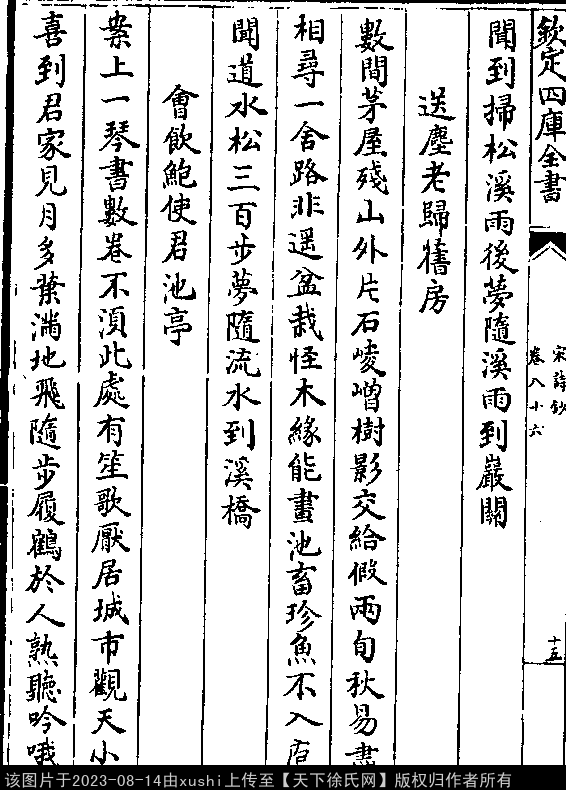 欽定四庫全書
宋詩鈔
卷八十六
十五
聞到掃松溪雨後夢隨溪雨到巖關
送塵老歸舊房
數間茅屋殘山外片石崚嶒樹影交給假兩旬秋易盡
相尋一舍路非遥盆栽怪木緣能畫池畜珍魚不入庖
聞道水松三百步夢隨流水到溪橋
會飲鮑使君池亭
案上一琴書數卷不須此處有笙歌厭居城市觀天小
喜到君家見月多葉滿地飛隨步履鶴於人熟聽吟哦
该图片于2023-08-14由xushi上传至【天下徐氏网】版权归作者所有